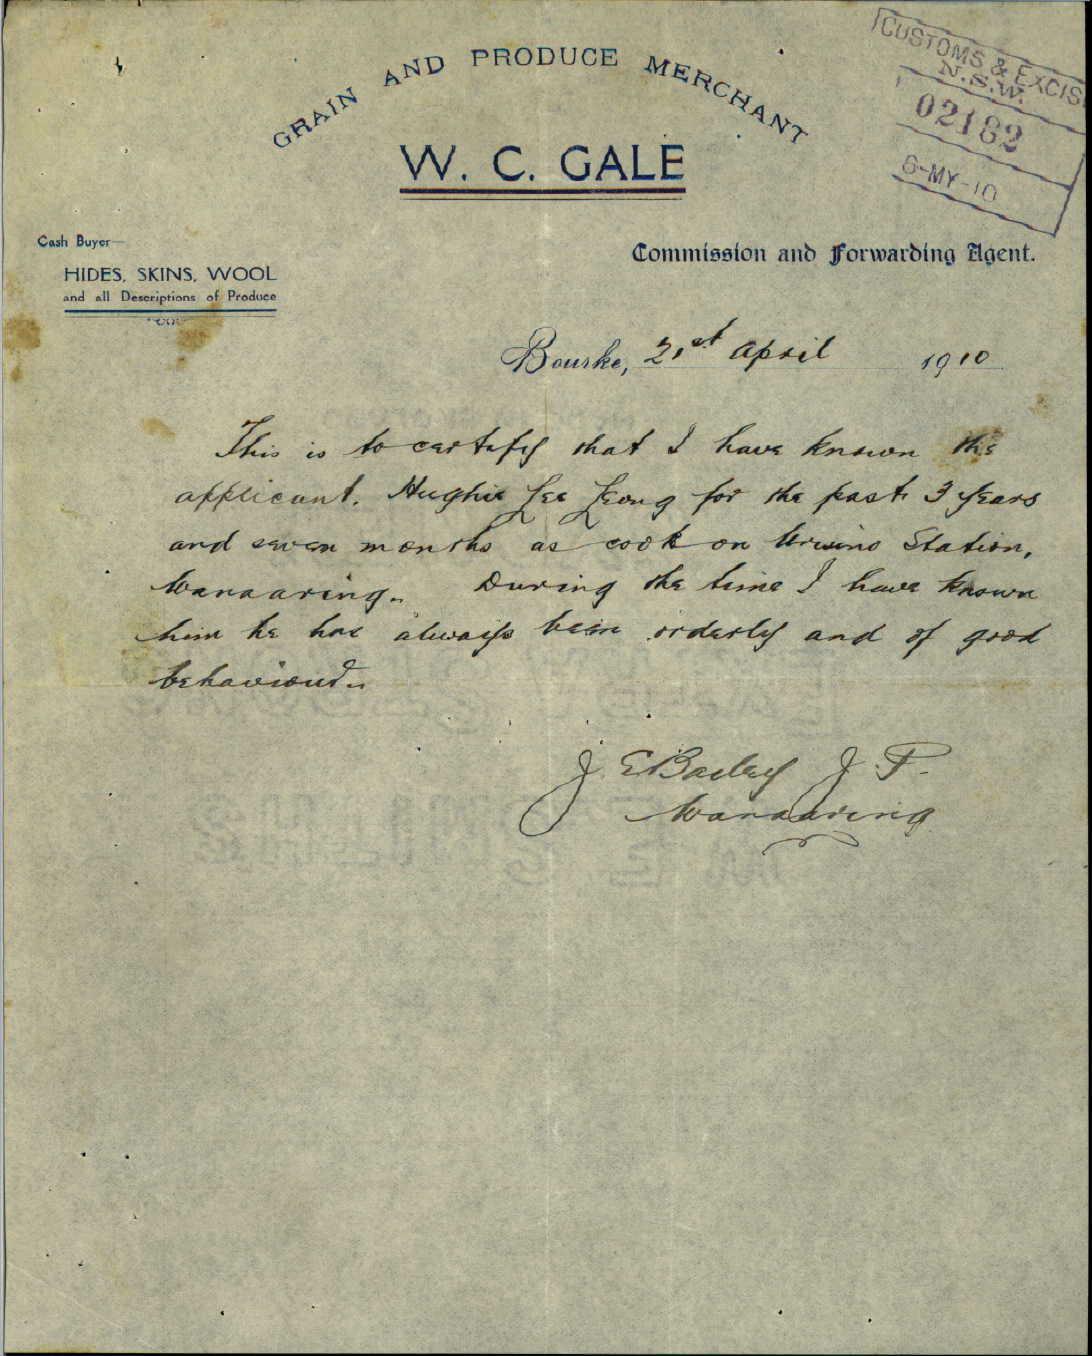 CUSTOMS & EXCIS
N.S.W.
02182
6-MY-10
GRAIN AND PRODUCE MERCHANT
W. C. GALE
Cash Buyer—
HIDES, SKINS, WOOL
and all Descriptions of Produce
Commission and Forwarding Agent.
Bourke, 21st April 1910
This is to certify that I have known the
applicant. Hughie Lee Leong for the past 3 years
and seven months as cook on Urisino Station,
Wanaaring. During the time I have known
him he has always been orderly and of good
behaviour.
J. E Bailey J. P.
Wanaaring